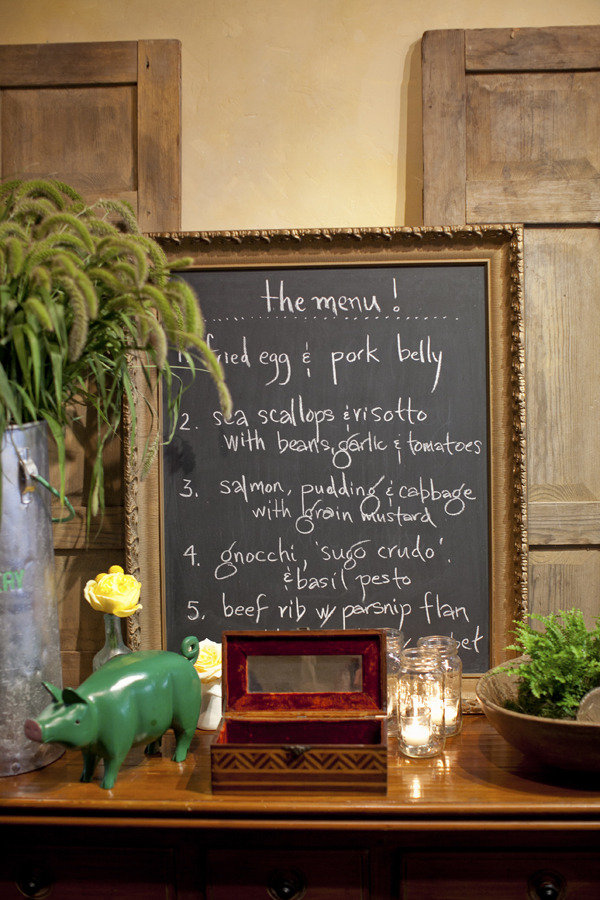 the menu!
1. fried egg & pork belly
2. sea scallops & risotto
with beans, garlic & tomatoes
3. salmon, pudding & cabbage
with grain mustard
4. gnocchi, 'sugo crudo'.
& basil pesto
5. beef rib w/ parsnip flan